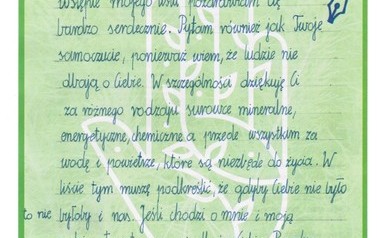 wstępie mojego listu pozdrawiam Cię
bardzo serdecznie. Pytam również jak Twoje
samoczucie, ponieważ wiem, że ludzie nie
dbają o Ciebie. W szczególności dziękuję Ci
za różnego rodzaju surowce mineralne,
energetyczne, chemiczne a przede wszystkim za
wodę i powietrze, które są niezbędne do życia. W
liście tym muszę podkreślić, że gdyby Ciebie nie było
to nie byłoby i nas. Jeśli chodzi o mnie i moją